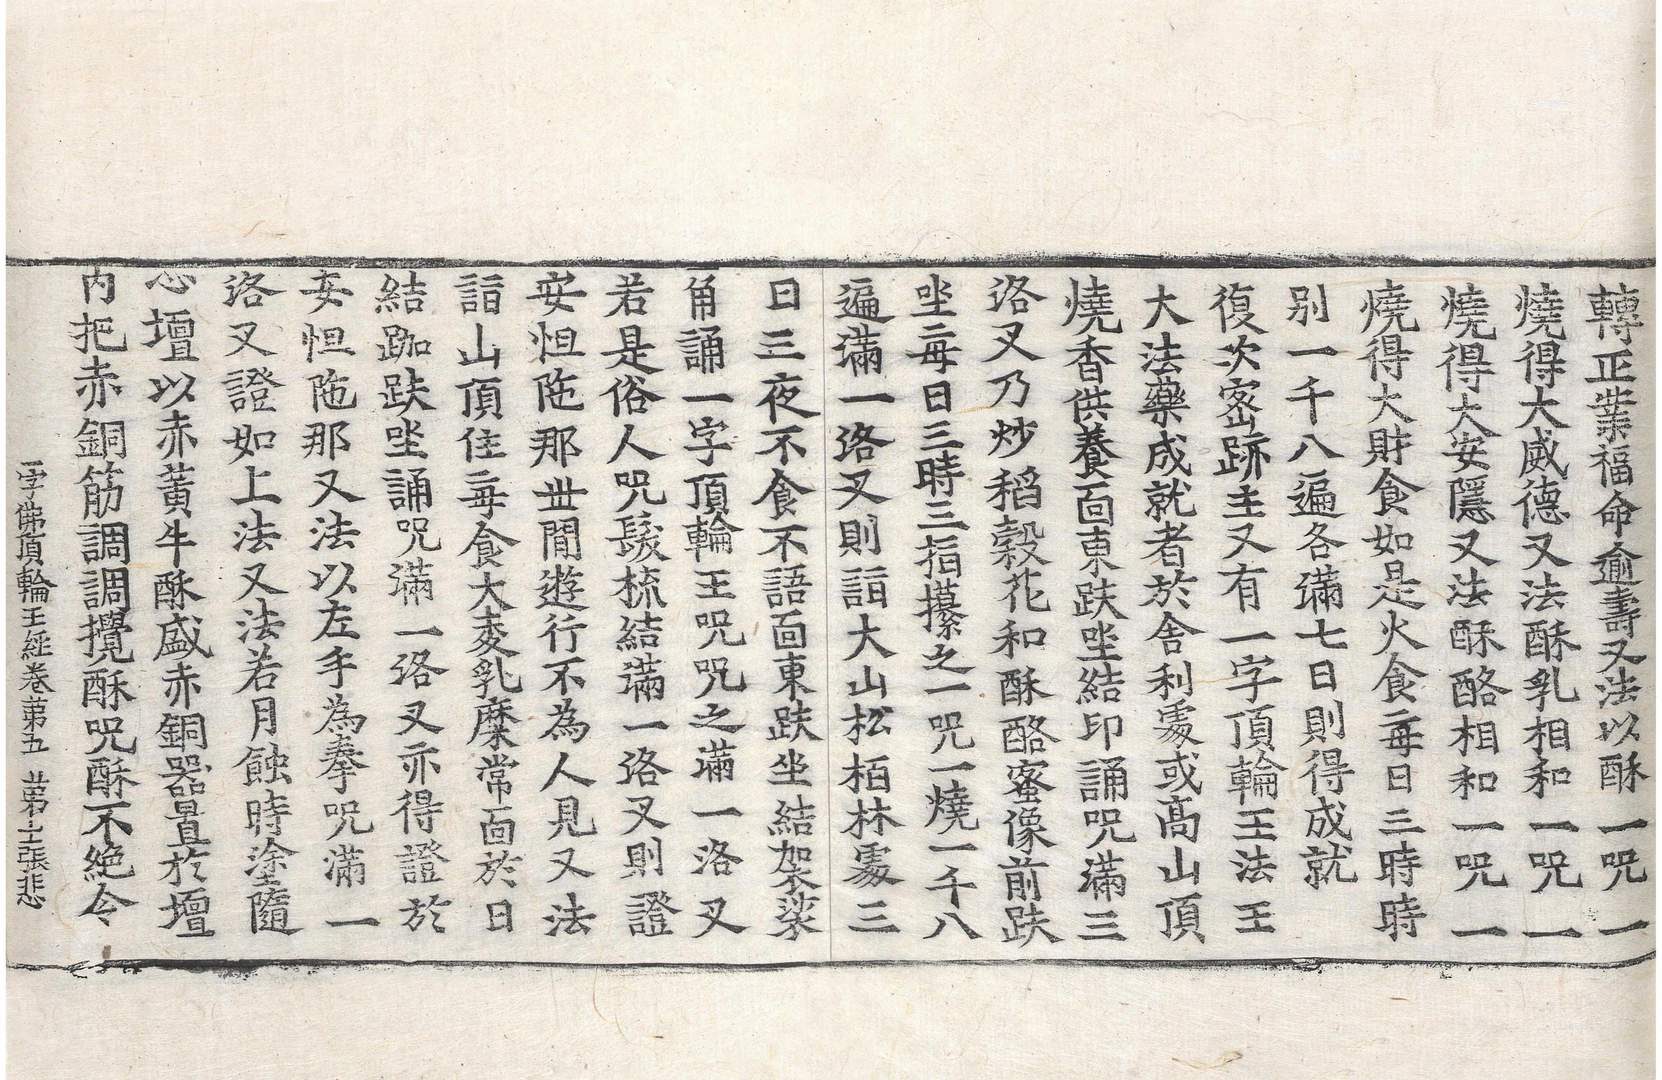 轉正業福命逾壽又法以酥一呪一
燒得大威德又法酥乳相和一呪一
燒得大安隱又法酥酪相和一呪一
燒得大財食如是火食每日三時時
別一千八遍各滿七日則得成就
復次密跡主又有一字頂輪王法王
大法藥成就者於舍利處或高山頂
燒香供養面東趺坐結印誦呪滿三
洛叉乃炒稻糓花和酥酪蜜像前趺
坐每日三時三指撮之一呪一燒一千八
遍滿一洛叉則詣大山松柏林處三
日三夜不食不語面東趺坐結袈裟
角誦一字頂輪王呪呪之滿一洛叉
若是俗人呪髮梳結滿一洛叉則證
安怛陁那世間遊行不為人見又法
詣山頂住每食大麥乳糜常面於日
結跏趺坐誦呪滿一洛叉亦得證於
安怛陁那又法以左手為拳呪滿一
洛叉證如上法又法若月蝕時塗隨
心壇以赤黃牛酥盛赤銅器置於壇
內把赤銅筯調調攪酥呪酥不絕令
一字佛頂輪王經卷第五　第十二張　悲